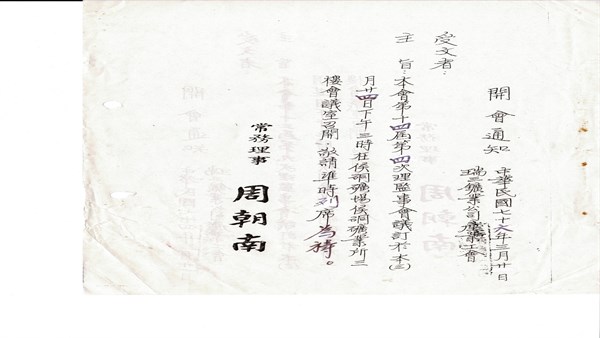 開會通知
中華民國七十六年三月廿日
瑞三鑛業公司產業工會
受文者：
主　旨：本會第十四屆第四次理監事會議訂於本(三)
月廿四日下午三時在侯硐鑛場侯硐鑛業所二
樓會議室召開，敬請準時列席為禱。
常務理事　周朝南